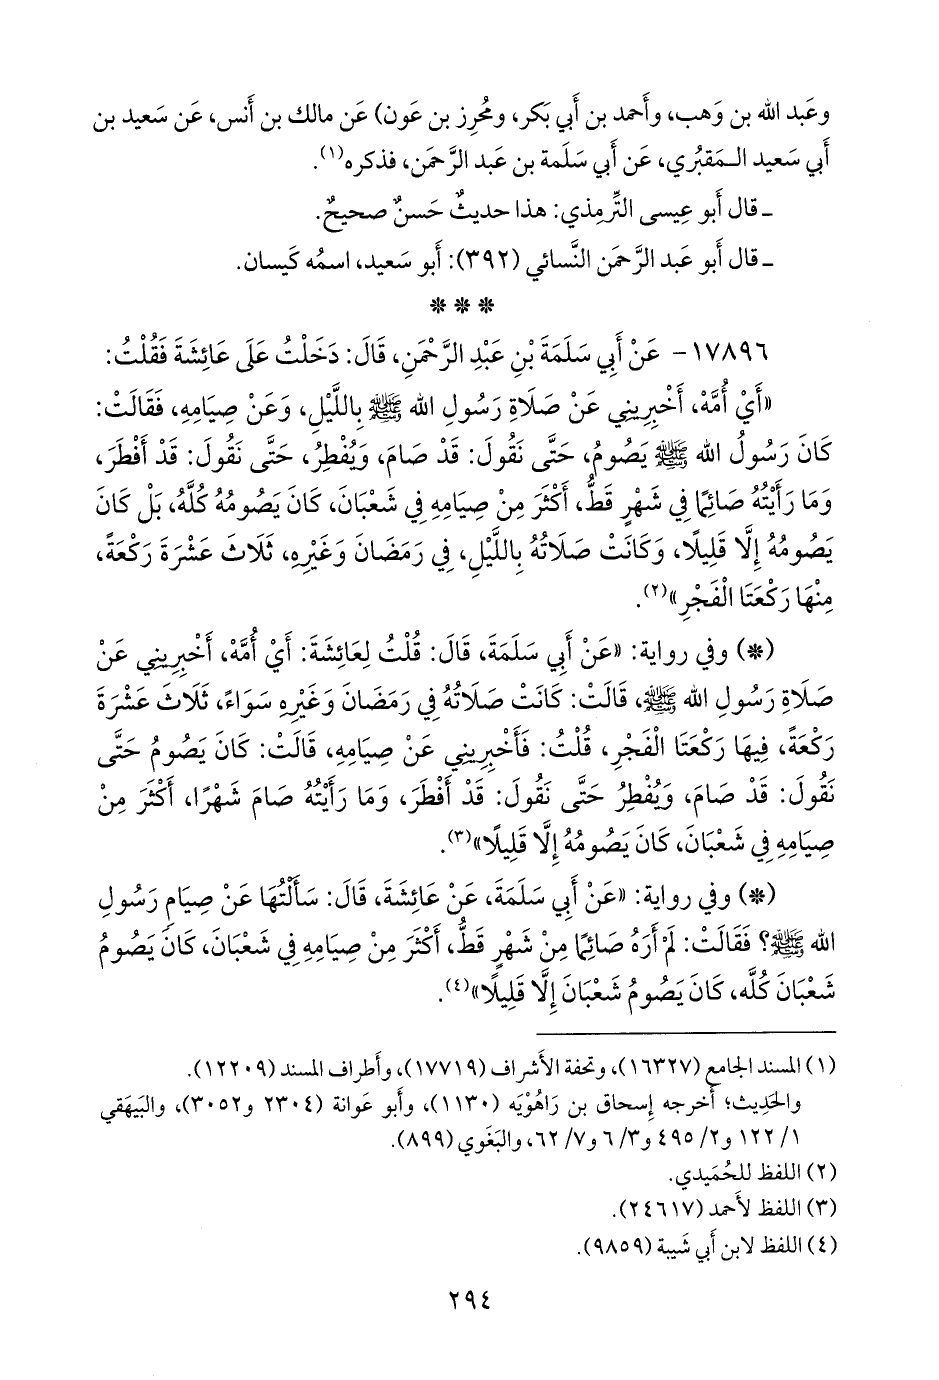 وعَبد الله بن وَهب، وأَحمد بن أَبي بَكر، ومُحرِز بن عَون) عَن مالك بن أَنس، عَن سَعيد بن
أَبي سَعيد الـمَقبُري، عَن أَبي سَلَمة بن عَبد الرَّحمَن، فذكره(١).
ـ قال أَبو عِيسى التِّرمِذي: هذا حديثٌ حَسنٌ صحيحٌ.
ـ قال أَبو عَبد الرَّحمَن النَّسائي (٣٩٢): أَبو سَعيد، اسمُه كَيسان.
* * *
١٧٨٩٦- عَنْ أَبِي سَلَمَةَ بْنِ عَبْدِ الرَّحْمَنِ، قَالَ: دَخَلْتُ عَلَى عَائِشَةَ فَقُلْتُ:
«أَيْ أُمَّهْ، أَخْبِرِينِي عَنْ صَلَاةِ رَسُولِ الله ﷺ بِاللَّيْلِ، وَعَنْ صِيَامِهِ، فَقَالَتْ:
كَانَ رَسُولُ الله ﷺ يَصُومُ، حَتَّى نَقُولَ: قَدْ صَامَ، وَيُفْطِرُ، حَتَّى نَقُولَ: قَدْ أَفْطَرَ،
وَمَا رَأَيْتُهُ صَائِمًا فِي شَهْرٍ قَطُّ، أَكْثَرَ مِنْ صِيَامِهِ فِي شَعْبَانَ، كَانَ يَصُومُهُ كُلَّهُ، بَلْ كَانَ
يَصُومُهُ إِلَّا قَلِيلًا، وَكَانَتْ صَلَاتُهُ بِاللَّيْلِ، فِي رَمَضَانَ وَغَيْرِهِ، ثَلَاثَ عَشْرَةَ رَكْعَةً،
مِنْهَا رَكْعَتَا الْفَجْرِ»(٢).
(*) وفي رواية: «عَنْ أَبِي سَلَمَةَ، قَالَ: قُلْتُ لِعَائِشَةَ: أَيْ أُمَّهْ، أَخْبِرِينِي عَنْ
صَلَاةِ رَسُولِ الله ﷺ، قَالَتْ: كَانَتْ صَلَاتُهُ فِي رَمَضَانَ وَغَيْرِهِ سَوَاءً، ثَلَاثَ عَشْرَةَ
رَكْعَةً، فِيهَا رَكْعَتَا الْفَجْرِ، قُلْتُ: فَأَخْبِرِينِي عَنْ صِيَامِهِ، قَالَتْ: كَانَ يَصُومُ حَتَّى
نَقُولَ: قَدْ صَامَ، وَيُفْطِرُ حَتَّى نَقُولَ: قَدْ أَفْطَرَ، وَمَا رَأَيْتُهُ صَامَ شَهْرًا، أَكْثَرَ مِنْ
صِيَامِهِ فِي شَعْبَانَ، كَانَ يَصُومُهُ إِلَّا قَلِيلًا»(٣).
(*) وفي رواية: «عَنْ أَبِي سَلَمَةَ، عَنْ عَائِشَةَ، قَالَ: سَأَلْتُهَا عَنْ صِيَامِ رَسُولِ
الله ﷺ؟ فَقَالَتْ: لَمْ أَرَهُ صَائِمًا مِنْ شَهْرٍ قَطُّ، أَكْثَرَ مِنْ صِيَامِهِ فِي شَعْبَانَ، كَانَ يَصُومُ
شَعْبَانَ كُلَّه، كَانَ يَصُومُ شَعْبَانَ إِلَّا قَلِيلًا»(٤).
(١) المسند الجامع (١٦٣٢٧)، وتحفة الأشراف (١٧٧١٩)، وأَطراف المسند (١٢٢٠٩).
والحَدِيث؛ أَخرجه إِسحاق بن رَاهُوْيَه (١١٣٠)، وأَبو عَوانة (٢٣٠٤ و٣٠٥٢)، والبَيهَقي
١/ ١٢٢ و٢/ ٤٩٥ و٣/ ٦ و٧/ ٦٢، والبَغَوي (٨٩٩).
(٢) اللفظ للحُمَيدي.
(٣) اللفظ لأَحمد (٢٤٦١٧).
(٤) اللفظ لابن أَبي شَيبة (٩٨٥٩).
٢٩٤